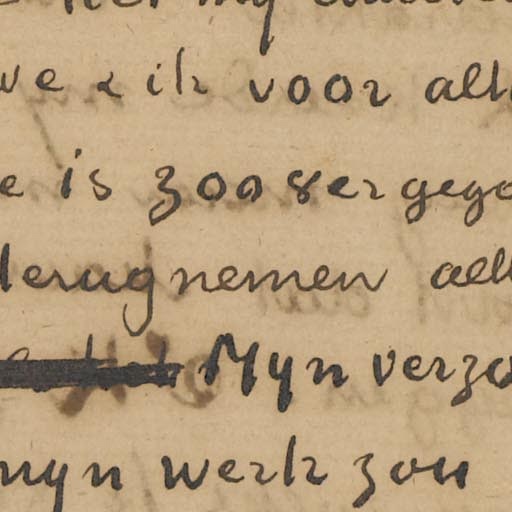 my
we & ik voor all
e is zoo zeer gege
terugnemen all
Myn verzo
myn werk zou